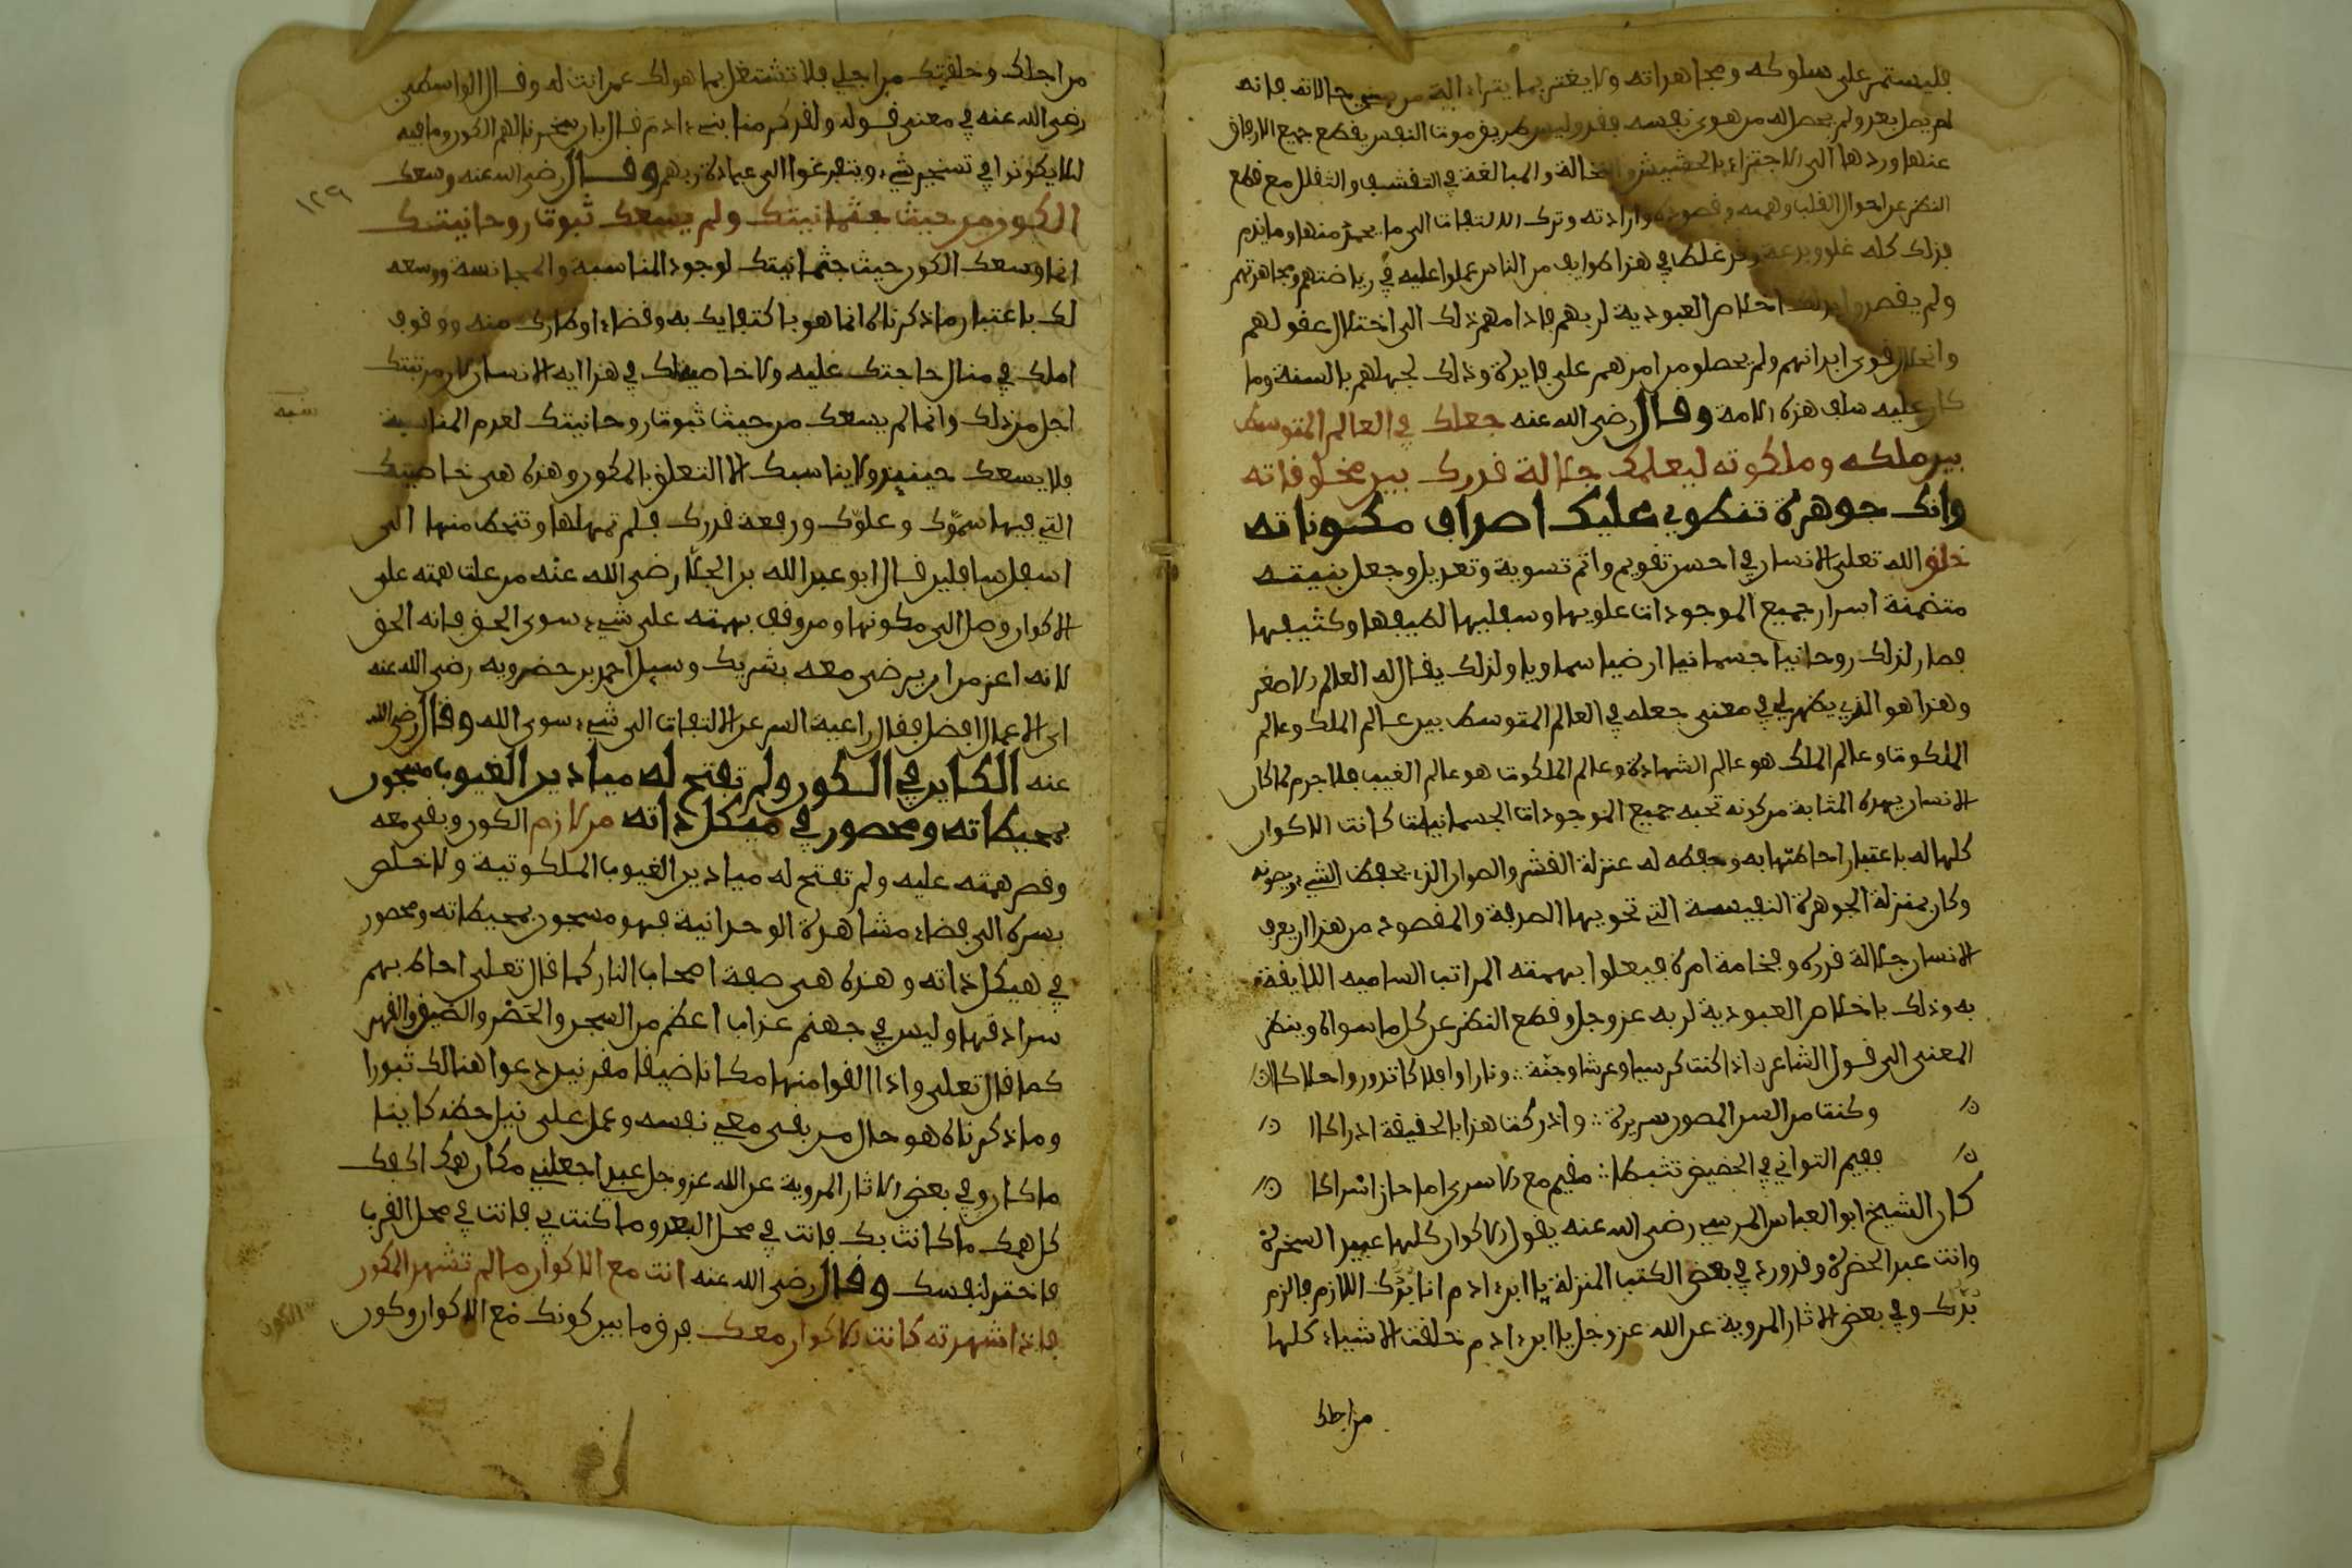 فليستمر على سلوكه ومجاهداته ولا يغتر بما يتراءى اليه من بعض حالاته فانه
لم يصل بعد ولم يحصل له من هوى نفسه فقد وليس طريق موت النفس بقطع جميع الارفاق
عنها وردها الى الاجتزاء بالحشيش والنخالة والمبالغة في التقشف والتقلل مع قطع
النظر عن احوال القلب وهمه وقصوده وارادته وترك الالتفات الى ما يحمد منها وما يذم
فذلك كله غلو وبدعة وقد غلط في هذا طوايف من الناس عملوا عليه في رياضتهم ومجاهدتهم
ولم يقصدوا بذلك اخلاص العبودية لربهم فاداهم ذلك الى اختلال عقولهم
وانحلال قوى ابدانهم ولم يحصلو من امرهم على فايدة وذلك لجهلهم بالسنة وما
كان عليه سلف هذه الامة وقال رضى الله عنه جعلك في العالم المتوسط
بين ملكه وملكوته ليعلمك جلالة قدرك بين مخلوقاته
وانك جوهرة تنطوي عليك اصداف مكوناته
خلق الله تعلى الانسان في احسن تقويم واتم تسوية وتعديل وجعل بنيته
متضمنة اسرار جميع الموجودات علويها وسفليها لطيفها وكثيفها
فصار لذلك روحانيا جسمانيا ارضيا سماويا ولذلك يقال له العالم الاصغر
وهذا هو الذي يظهر لي في معنى جعله في العالم المتوسط بين عالم الملك وعالم
الملكوت وعالم الملك هو عالم الشهادة وعالم الملكوت هو عالم الغيب فلا جرم لما كان
الانسان بهذه المثابة من كونه تحبه جميع الموجودات الجسمانيات كانت الاكوان
كلها له باعتبار احاطتها به وحفظه له عنزلة القشر والصوان الذي يحفظ الشيء ويصونه
وكان بمنزلة الجوهرة النفيسة التي تحويها الصدفة والمقصود من هذا ان يعرف
الانسان جلالة قدره وفخامة امره فيعلوا بهمته المراتب الساميه اللايقة
به وذلك باخلاص العبودية لربه عز وجل وقطع النظر عن كل ما سواه وينظر
المعنى الى قول الشاعر اذا كنت كرسيا وعرشا وجنة ونارا وافلاكا تدور واملاكا
وكنت من السر المصون سريرة واذركت هذا بالحقيقة ادراكا
ففيم التواني في الحضيض تثبطا مقيم مع الاسرى اما حاز اشراكا
كان الشيخ ابو العباس المرسي رضى الله عنه يقول الاكوان كلها عبيد السخرة
وانت عبد الحضرة وقد ورد في بعض الكتب المنزلة يا ابن ادم انا بدك اللازم فالزم
بدك وفي بعض الاثار المروية عن الله عز وجل يا ابن ادم خلقت الاشياء كلها
من اجلك
من اجلك وخلقتك من اجلي فلا تشتغل بما هو لك عمن انت له وقال الواسطي
رضى الله عنه في معنى قوله ولقد كرمنا بني ادم قال بان سخرنا لهم الكون وما فيه
لئلا يكونوا في تسخير شيء ويتفرغوا الى عبادة ربهم وقال رضى الله عنه وسعك
الكون من حيث جثمانيتك ولم يسعك ثبوت روحانيتك
انما وسعك الكون حيث جثمانيتك لوجود المناسبة والمجانسة ووسعه
لك باعتبار ما ذكرناه انما هو باكتفايك به وقضاء اوطارك منه ووقوف
املك في منال حاجتك عليه ولا خاصية لك في هذا ايه الانسان لان مرتبتك
اجل من ذلك وانما لم يسعك من حيث ثبوت روحانيتك لعدم المناسبة
فلا يسعك حينيذ ولا يناسبك الا التعلق بالمكون وهذه هى خاصيتك
التي فيها سموك وعلوك ورفعة قدرك فلم تهملها وتنحط منها الى
اسفل سافلين قال ابو عبد الله بن الجلا رضى الله عنه من علت همته على
الاكوان وصل الى مكونها ومن وقف بهمته على شيء سوى الحق فاته الحق
لانه اعز من ان يرضى معه بشريك وسيل احمد بن خضرويه رضى الله عنه
اى الاعمال افضل فقال راعية السر عن الالتفات الى شيء سوى الله وقال رضى الله
عنه الكاين في الكون ولم تفتح له ميادين الغيوب مسجون
بمحيطاته ومحصور في هيكل ذاته من لازم الكون وبقى معه
وقصر همته عليه ولم تفتح له ميادين الغيوب الملكوتية ولا خلص
بسره الى فضاء مشاهدة الوحدانية فهو مسجون بمحيطاته ومحصور
في هيكل ذاته وهذه هى صفة اصحاب النار كما قال تعلى احاط بهم
سرادقها وليس في جهنم عذاب اعظم من السجن والحصر والضيق والقهر
كما قال تعلى واذا القوا منها مكانا ضيقا مقرنين دعوا هنالك ثبورا
وما ذكرناه هو حال من بقى مع نفسه وعمل على نيل حظه كاينا
ما كان وفي بعض الاثار المروية عن الله عز وجل عبد اجعلني مكان همك اكفك
كل همك ما كانت بك فانت في محل البعد وما كنت بي فانت في محل القرب
فاختر لنفسك وقال رضى الله عنه انت مع الاكوان ما لم تشهد المكون
فاذا شهدته كانت الاكوان معك فرق ما بين كونك مع الاكوان وكون
١٢٩
تنبيه
الكون